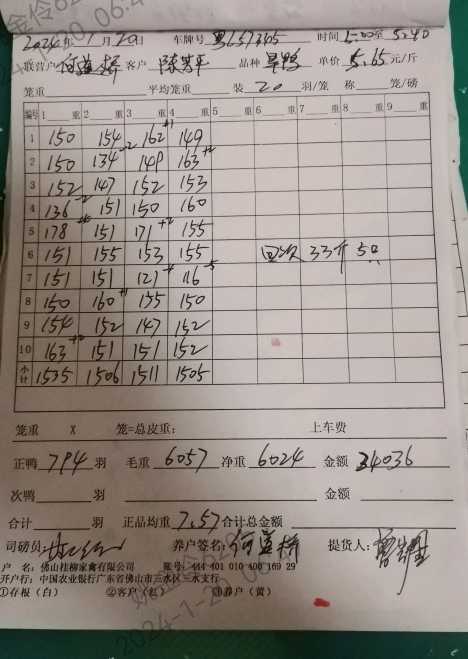 2024年 1月 20日 车牌号 粤L57345 时间 5:00至 5:40
联营户 何益桥 客户 陈芳平 品种 旱鸭 单价 5.65 元/斤
笼重 平均笼重 装 20 羽/笼 称 笼/磅
编号 1 重 2 重 3 重 4 重 5 重 6 重 7 重 8 重 9 重
1 150 154 162 +1 149
2 150 134 -2 149 163 +2
3 152 147 152 153
4 136 -2 151 150 160
5 178 151 171 +2 155
6 151 155 153 155 回次 33斤 5只
7 151 151 127 116
8 150 160 155 150
9 154 152 147 152
10 163 151 151 152
小计 1535 1506 1511 1505
笼重 X 笼=总皮重: 上车费
正鸭 794 羽 毛重 6057 净重 6024 金额 34036
次鸭 羽 金额
合计 羽 正品均重 7.57 合计总金额
司磅员: 养户签名: 何益桥 提货人:
户 名: 佛山桂柳家禽有限公司 账号: 444 401 010 400 169 29
开户行: 中国农业银行广东省佛山市三水区三水支行
①存根(白) ②客户(红) ③养户(黄)
2024-1-20 06:4